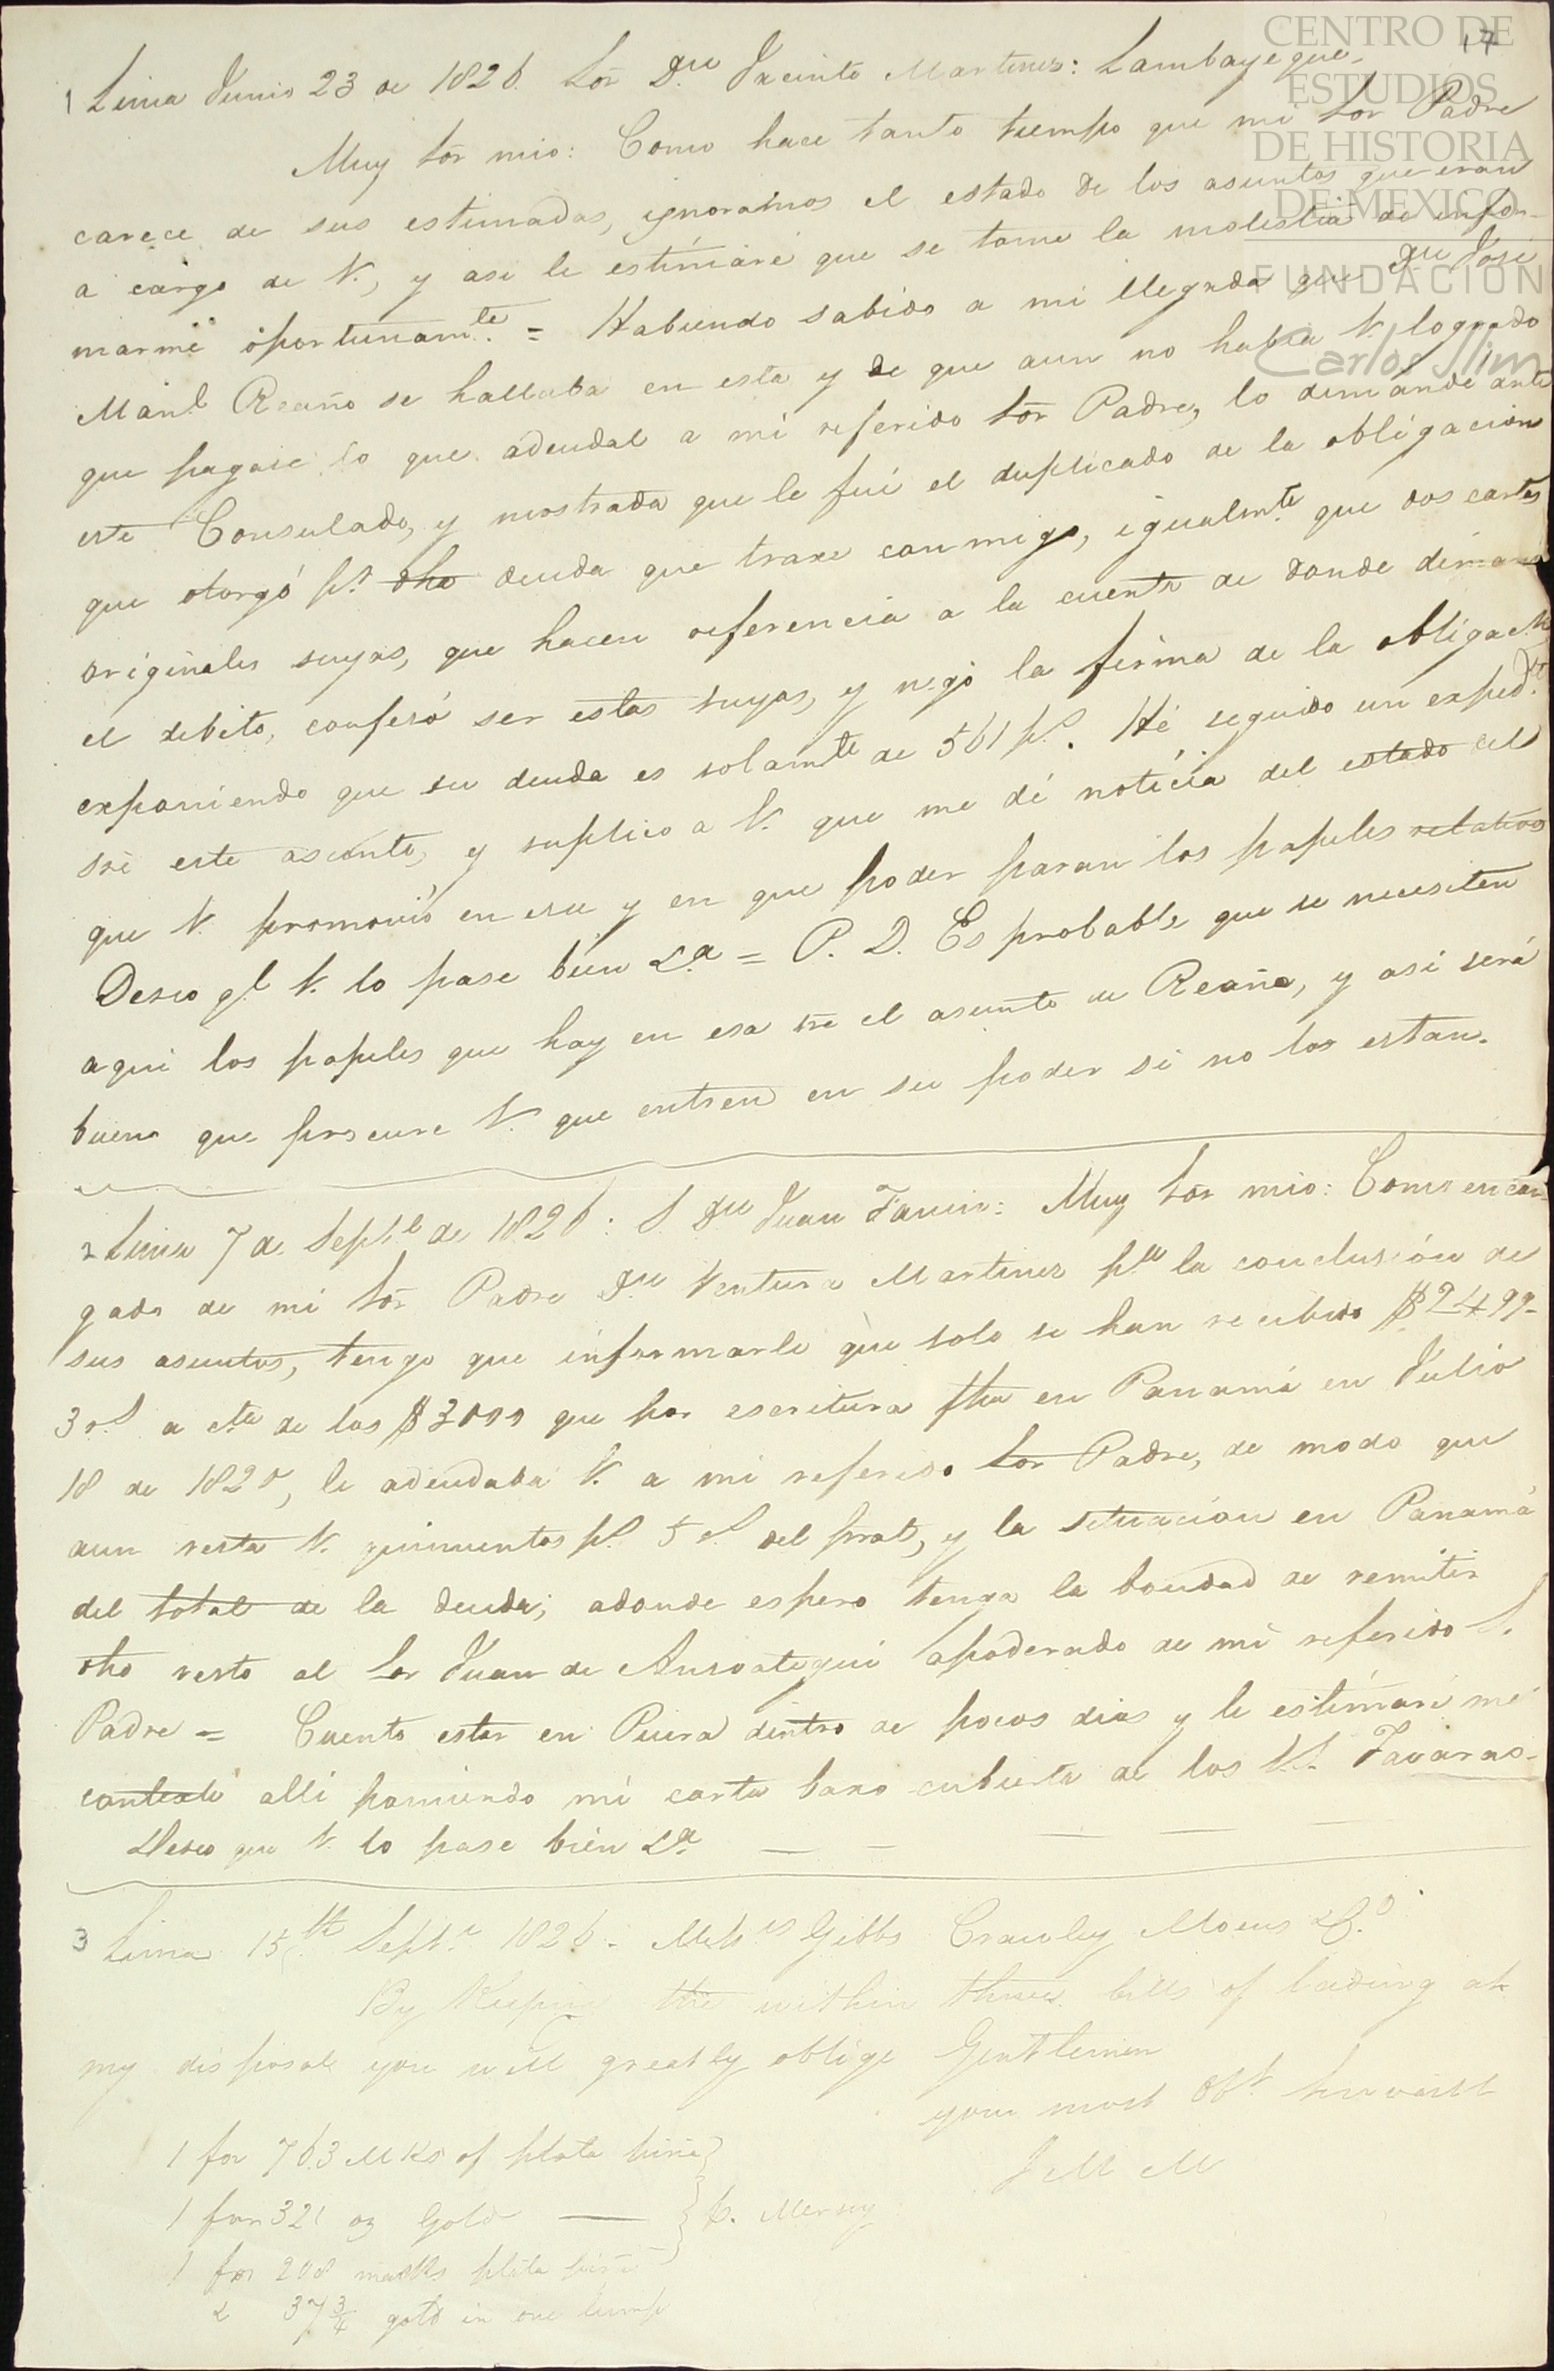 17
CENTRO DE
ESTUDIOS
DE HISTORIA
DE MEXICO
FUNDACION
Carlos Slim
1 Lima Junio 23 de 1826. Sōr Dn. Jacinto Martinez: Lambayeque.
Muy Sōr mio: Como hace tanto tiempo que mi Sōr Padre
carece de sus estimadas, ignoramos el estado de los asuntos que eran
a cargo de V., y asi le estimaré que se tome la molestia de infor-
marme oportunamte. = Habiendo sabido a mi llegada que Dn José
Manl. Reaño se hallaba en esta y de que aun no habia V. logrado
que pagase lo que adeudal a mi referido Sōr Padre, lo demandé ante
este Consulado, y mostrada que le fué el duplicado de la obligacion
que otorgó pr. dha deuda que traxe conmigo, igualmte. que dos cartas
originales suyas, que hacen referencia a la cuenta de donde dimana
el debito, confesó ser estas suyas, y negó la firma de la obligacn.
exponiendo que su deuda es solamte de 561 ps. Hé seguido un expedte.
sre este asunto, y suplico a V. que me dé noticia del estado del
que V. promovió en esa y en que poder paran los papeles relativos
Deseo qe. V. lo pase bien &a = P. D. Es probable que se necesiten
aqui los papeles que hay en esa sre el asunto de Reaño, y asi será
bueno que procure V. que entren en su poder si no los estan.
2 Lima 7 de Septe de 1826: S. Dn Juan Fanin: Muy Sōr mio: Como encar-
gado de mi Sōr Padre Dn Ventura Martinez pa la conclusión de
sus asuntos, tengo que informarle que solo se han recibido $2499-
3 rs a cta de los $3000 que por escritura fha en Panamá en Julio
18 de 1820, le adeudaba V. a mi referido Sor Padre, de modo que
aun resta V. quinientos ps. 5 rs. del pral, y la situacion en Panamá
del total de la deuda; adonde espero tenga la bondad de remitir
dho resto al Sor Juan de Ansoategui apoderado de mi referido S.
Padre = Cuento estar en Piura dentro de pocos dias y le estimaré me
conteste alli poniendo mi carta baxo cubierta de los SS. Tavaras.
Deseo que V. lo pase bién &a.
3 Lima 15th Septr 1826. Messrs Gibbs Crawley Moens & Co.
By Keeping the within three bills of lading at
my disposal you will greatly oblige Gentlemen
your most Obt. servant
J M M
1 for 763 Mks of plata piña
1 for 321 oz Gold } p. Mersey
1 for 208 marks plata piña
& 37 3/4 gold in one lump